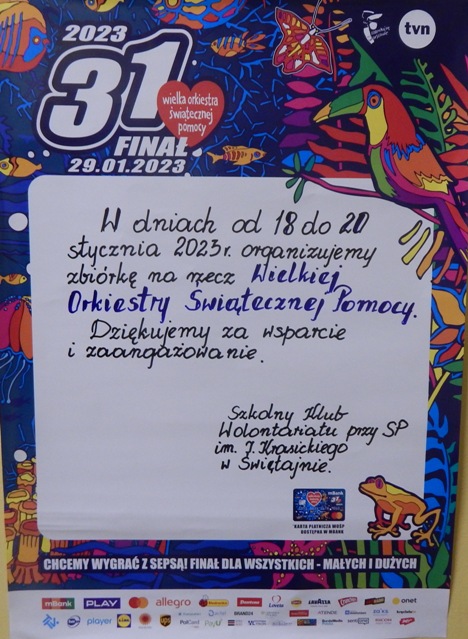 2023
31
wielka orkiestra
świątecznej
pomocy
FINAŁ
29.01.2023
tvn
W dniach od 18 do 20
stycznia 2023r. organizujemy
zbiórkę na rzecz Wielkiej
Orkiestry Świątecznej Pomocy.
Dziękujemy za wsparcie
i zaangażowanie.
Szkolny Klub
Wolontariatu przy SP
im. I. Krasickiego
w Świętajnie.
mBank
KARTA PŁATNICZA WOŚP
DOSTĘPNA W MBANK
CHCEMY WYGRAĆ Z SEPSĄ! FINAŁ DLA WSZYSTKICH - MAŁYCH I DUŻYCH
mBank PLAY allegro LAVAZZA onet
player LIDL